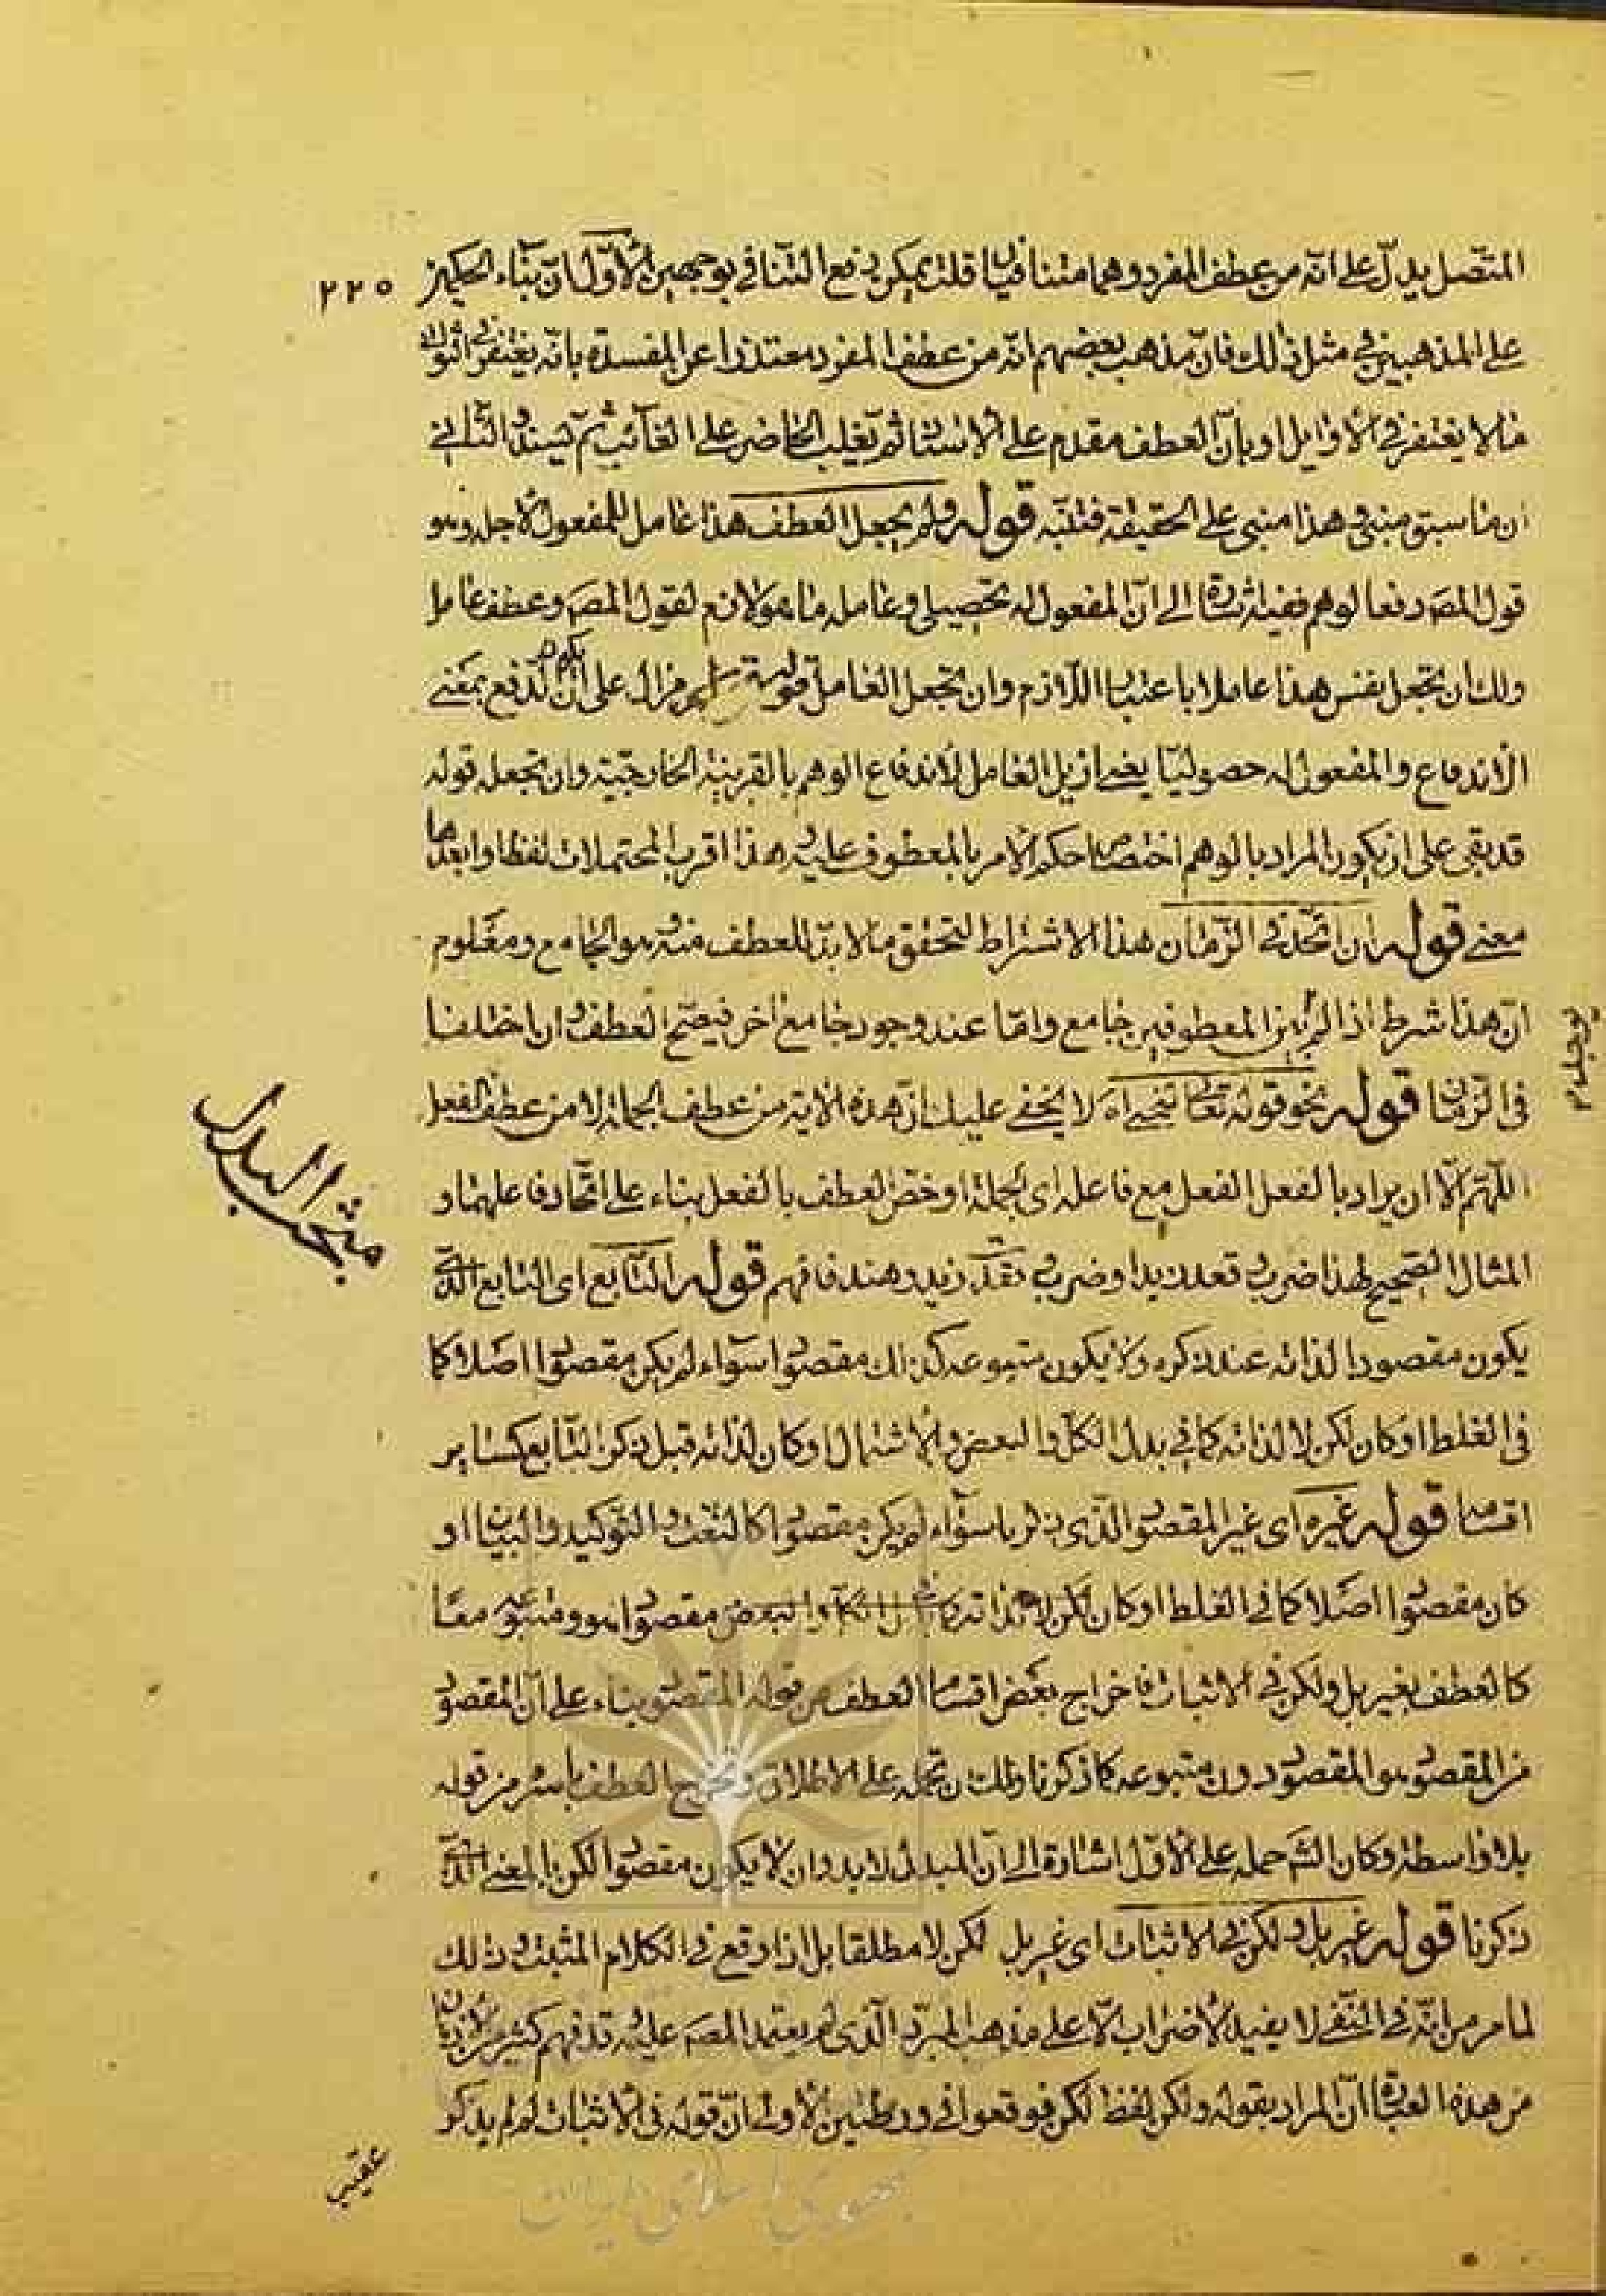 المتّصل يدلّ على انّه من عطف المفرد وهما متنافيان قلت يمكن دفع التنافي بوجهين الأوّل ان بناء الحكمين
٢٢٥
على المذهبين في مثل ذلك فان مذهب بعضهم انّه من عطف المفرد معتذرا عن المفسدة بانّه يغتفر في الثواني
ما لا يغتفر في الأوايل او بأن العطف مقدم على الاسناد ثم يغلب الحاضر على الغائب ثم يسند والثاني
ان ما سبق مبني وهذا مبني على الحقيقة فتنبّه قوله ولم يجعل العطف هذا عامل للمفعول لاجله وهو
قول المصـ دفعا لوهم ففيه اشارة الى ان المفعول له تحصيلي وعامله ما هو لازم لقول المصـ وعطف عامل
ولك ان تجعل نفس هذا عاملا باعتبار اللازم وان تجعل العامل قوله على ان يكون الدفع بمعنى
الاندفاع والمفعول له حصوليّا يعني ازيل العامل لأندفاع الوهم بالقرينة الخارجيّة وان تجعله قوله
قد بقى على ان يكون المراد بالوهم اختصاص حكم الأمر بالمعطوف عليه وهذا اقرب المحتملات لفظا وابعدها
معنى قوله ان اتّحد في الزمان هذا الاشتراط لتحقق ما لا بدّ للعطف منه وهو الجامع ومعلوم
انّ هذا شرط اذا لم يكن بين المعطوفين جامع وامّا عند وجود جامع اخر فيصّح العطف وان اختلفا
في الزمان قوله نحو قوله تعالى لنحيى اه لا يخفى عليك انّ هذه الاية من عطف الجملة لا من عطف الفعل
اللهمّ الّا ان يراد بالفعل الفعل مع فاعله اى الجملة او خصّ العطف بالفعل بناء على اتحاد فاعلهما و
المثال الصّحيح لهذا ضرب وقعد زيد وضرب وقعد زيد وهند فافهم قوله التّابع اى التابع الّذي
يكون مقصودا لذاته عند ذكره ولا يكون متبوعه كذلك مقصودا سواء لم يكن مقصودا اصلا كما
في الغلط او كان لكن لا لذاته كما في بدل الكلّ والبعض والأشتمال او كان لذاته قبل ذكر التابع كساير
اقسامه قوله غيره اى غير المقصود الّذي ذكرنا سواء لم يكن مقصودا كالنعت والتوكيد والبيان او
كان مقصودا اصلا كما في الغلط او كان لكن لا لذاته كما في بدل الكلّ والبعض مقصودا هو ومتبوعه معا
كالعطف بغير بل ولكن في الاثبات فاخراج بعض اقسام العطف من قوله المقصود بناء على ان المقصود
من المقصود هو المقصود دون متبوعه كما ذكرنا ولك ان تحمله على الاطلاق وتخرج العطف باسره من قوله
بلا واسطة وكان الشـ حمله على الأوّل اشارة الى ان المبدل لا بد وان لا يكون مقصودا لكن بالمعنى الّذي
ذكرنا قوله غير بل ولكن في الاثبات اى غير بل لكن لا مطلقا بل اذا وقع في الكلام المثبت وذلك
لما مر من انّه في النفى لا يفيد الأضراب الّا على مذهب المبرّد الّذي لم يعتمد المصـ عليه وقد فهم كثير من
من هذه العبارة ان المراد بقوله ولكن لفظ لكن فوقعوا في ورطتين الأولى انّ قوله في الأثبات لو لم يذكر
مبحث البدل
عقيب